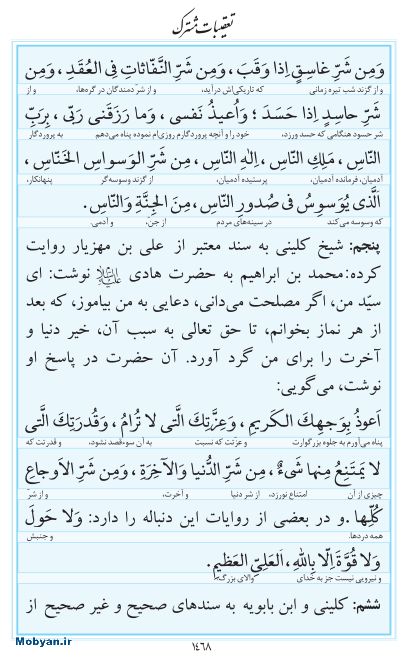 تعقیبات مشترک
وَمِن شَرِّ غاسِقٍ اِذا وَقَبَ ، وَمِن شَرِّ النَّفّاثاتِ فِی العُقَدِ ، وَمِن
و از گزند شب تیره زمانی که تاریکی‌اش درآید، و از شر دمندگان در گره‌ها، و از
شَرِّ حاسِدٍ اِذا حَسَدَ ؛ وَاُعیذُ نَفسی ، وَما رَزَقَنی رَبّی ، بِرَبِّ
شر حسود هنگامی که حسد ورزد، خود را و آنچه پروردگارم روزی‌ام نموده پناه می‌دهم به پروردگار
النّاسِ ، مَلِکِ النّاسِ ، اِلٰهِ النّاسِ ، مِن شَرِّ الوَسواسِ الخَنّاسِ ،
آدمیان، فرمانده آدمیان، پرستیده آدمیان، از گزند وسوسه‌گر پنهانکار،
اَلَّذی یُوَسوِسُ فی صُدورِ النّاسِ ، مِنَ الجِنَّةِ وَالنّاسِ.
که وسوسه می‌کند در سینه‌های مردم از جن، و آدمی.
پنجم: شیخ کلینی به سند معتبر از علی بن مهزیار روایت
کرده:محمد بن ابراهیم به حضرت هادی نوشت: ای
سیّد من، اگر مصلحت می‌دانی، دعایی به من بیاموز، که بعد
از هر نماز بخوانم، تا حق تعالی به سبب آن، خیر دنیا و
آخرت را برای من گرد آورد. آن حضرت در پاسخ او
نوشت، می‌گویی:
اَعوذُ بِوَجهِکَ الکَریمِ ، وَعِزَّتِکَ الَّتی لا تُرامُ ، وَقُدرَتِکَ الَّتی
پناه می‌آورم به جلوه بزرگوارت و عزّتت که نسبت به آن سوءقصد نشود، و قدرتت که
لا یَمتَنِعُ مِنها شَیءٌ ، مِن شَرِّ الدُّنیا وَالآخِرَةِ ، وَمِن شَرِّ الاَوجاعِ
چیزی از آن امتناع نورزد، از شر دنیا و آخرت، و از شر
کُلِّها .و در بعضی از روایات این دنباله را دارد: وَلا حَولَ
همه دردها. و جنبش
وَلا قُوَّةَ اِلّا بِاللهِ ، اَلعَلِیِّ العَظیمِ.
و نیرویی نیست جز به خدای والای بزرگ.
ششم: کلینی و ابن بابویه به سندهای صحیح و غیر صحیح از
۱۴۶۸
Mobyan.ir